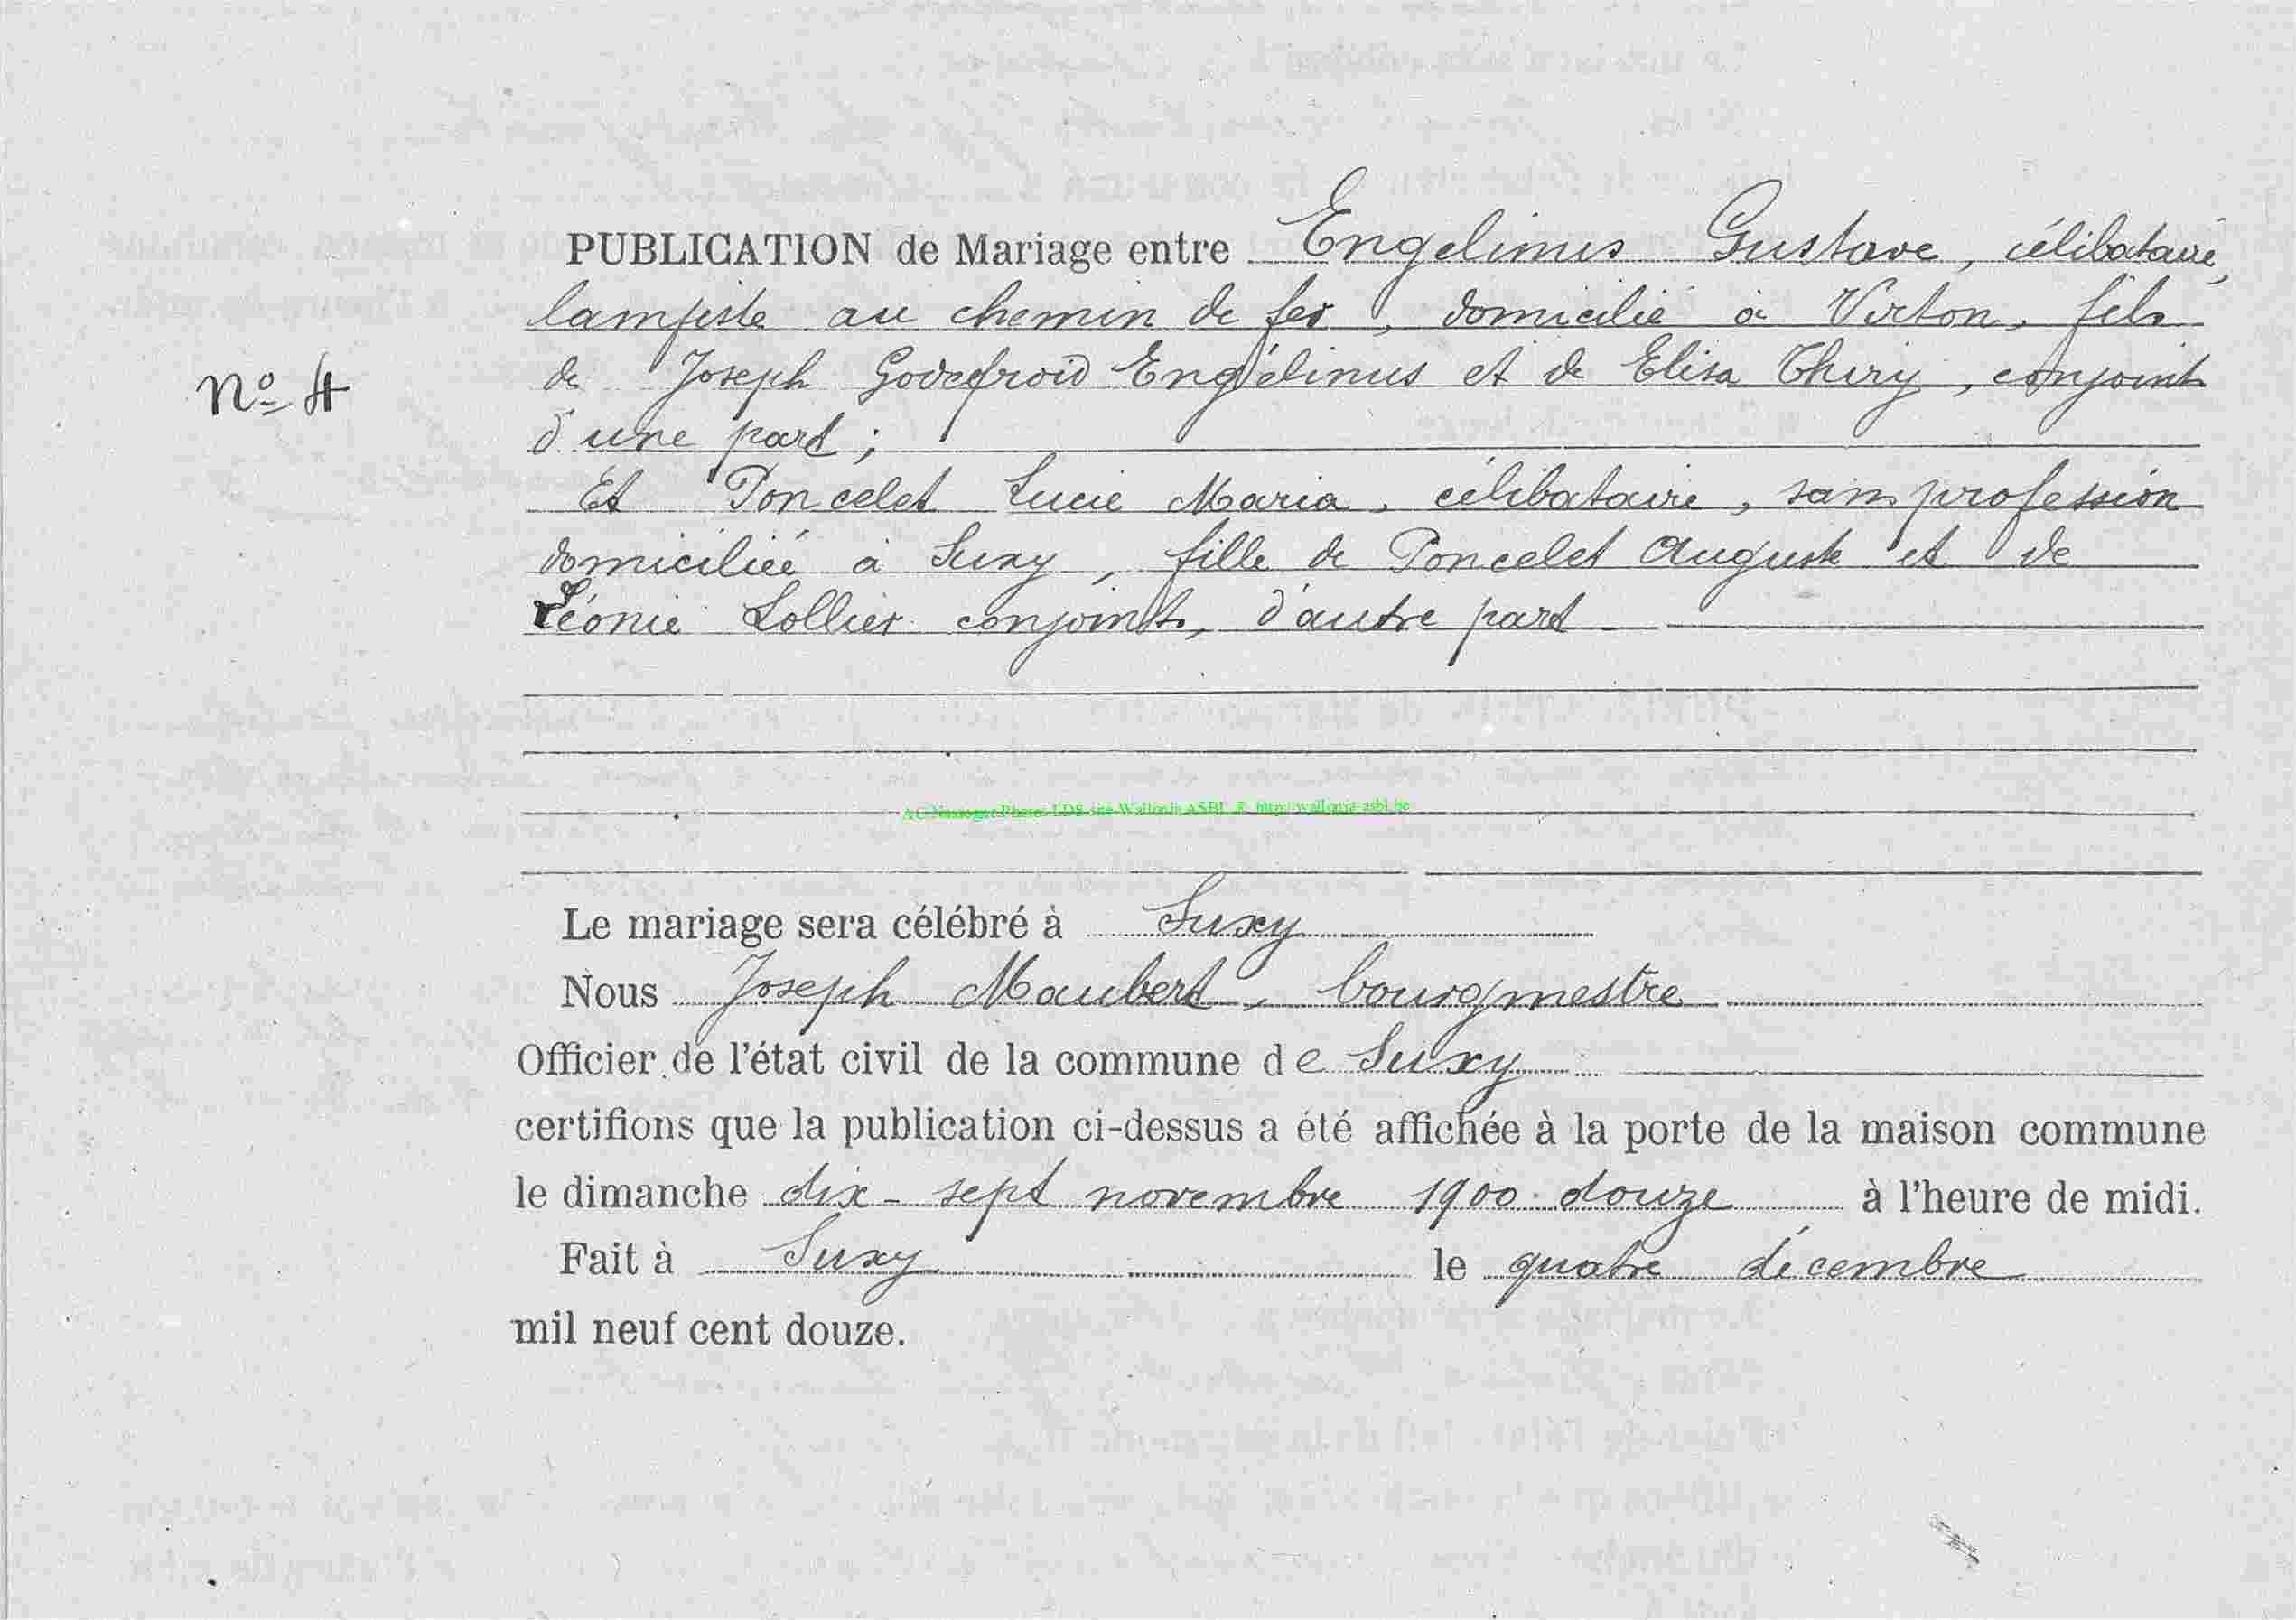 PUBLICATION de Mariage entre Engelinus Gustave, célibataire,
lampiste au chemin de fer, domicilié à Virton, fils
de Joseph Godefroid Engélinus et de Elisa Thiry, conjoints
N° 4
d'une part ;
Et Poncelet Lucie Maria, célibataire, sans profession
domiciliée à Suxy, fille de Poncelet Auguste et de
Léonie Lollier conjoints, d'autre part
Photos LDS site Wallonie ASBL © http://wallonie-asbl.be
Le mariage sera célébré à Suxy
Nous Joseph Maubert, bourgmestre
Officier de l'état civil de la commune de Suxy
certifions que la publication ci-dessus a été affichée à la porte de la maison commune
le dimanche dix-sept novembre 1900 douze à l'heure de midi.
Fait à Suxy le quatre décembre
mil neuf cent douze.